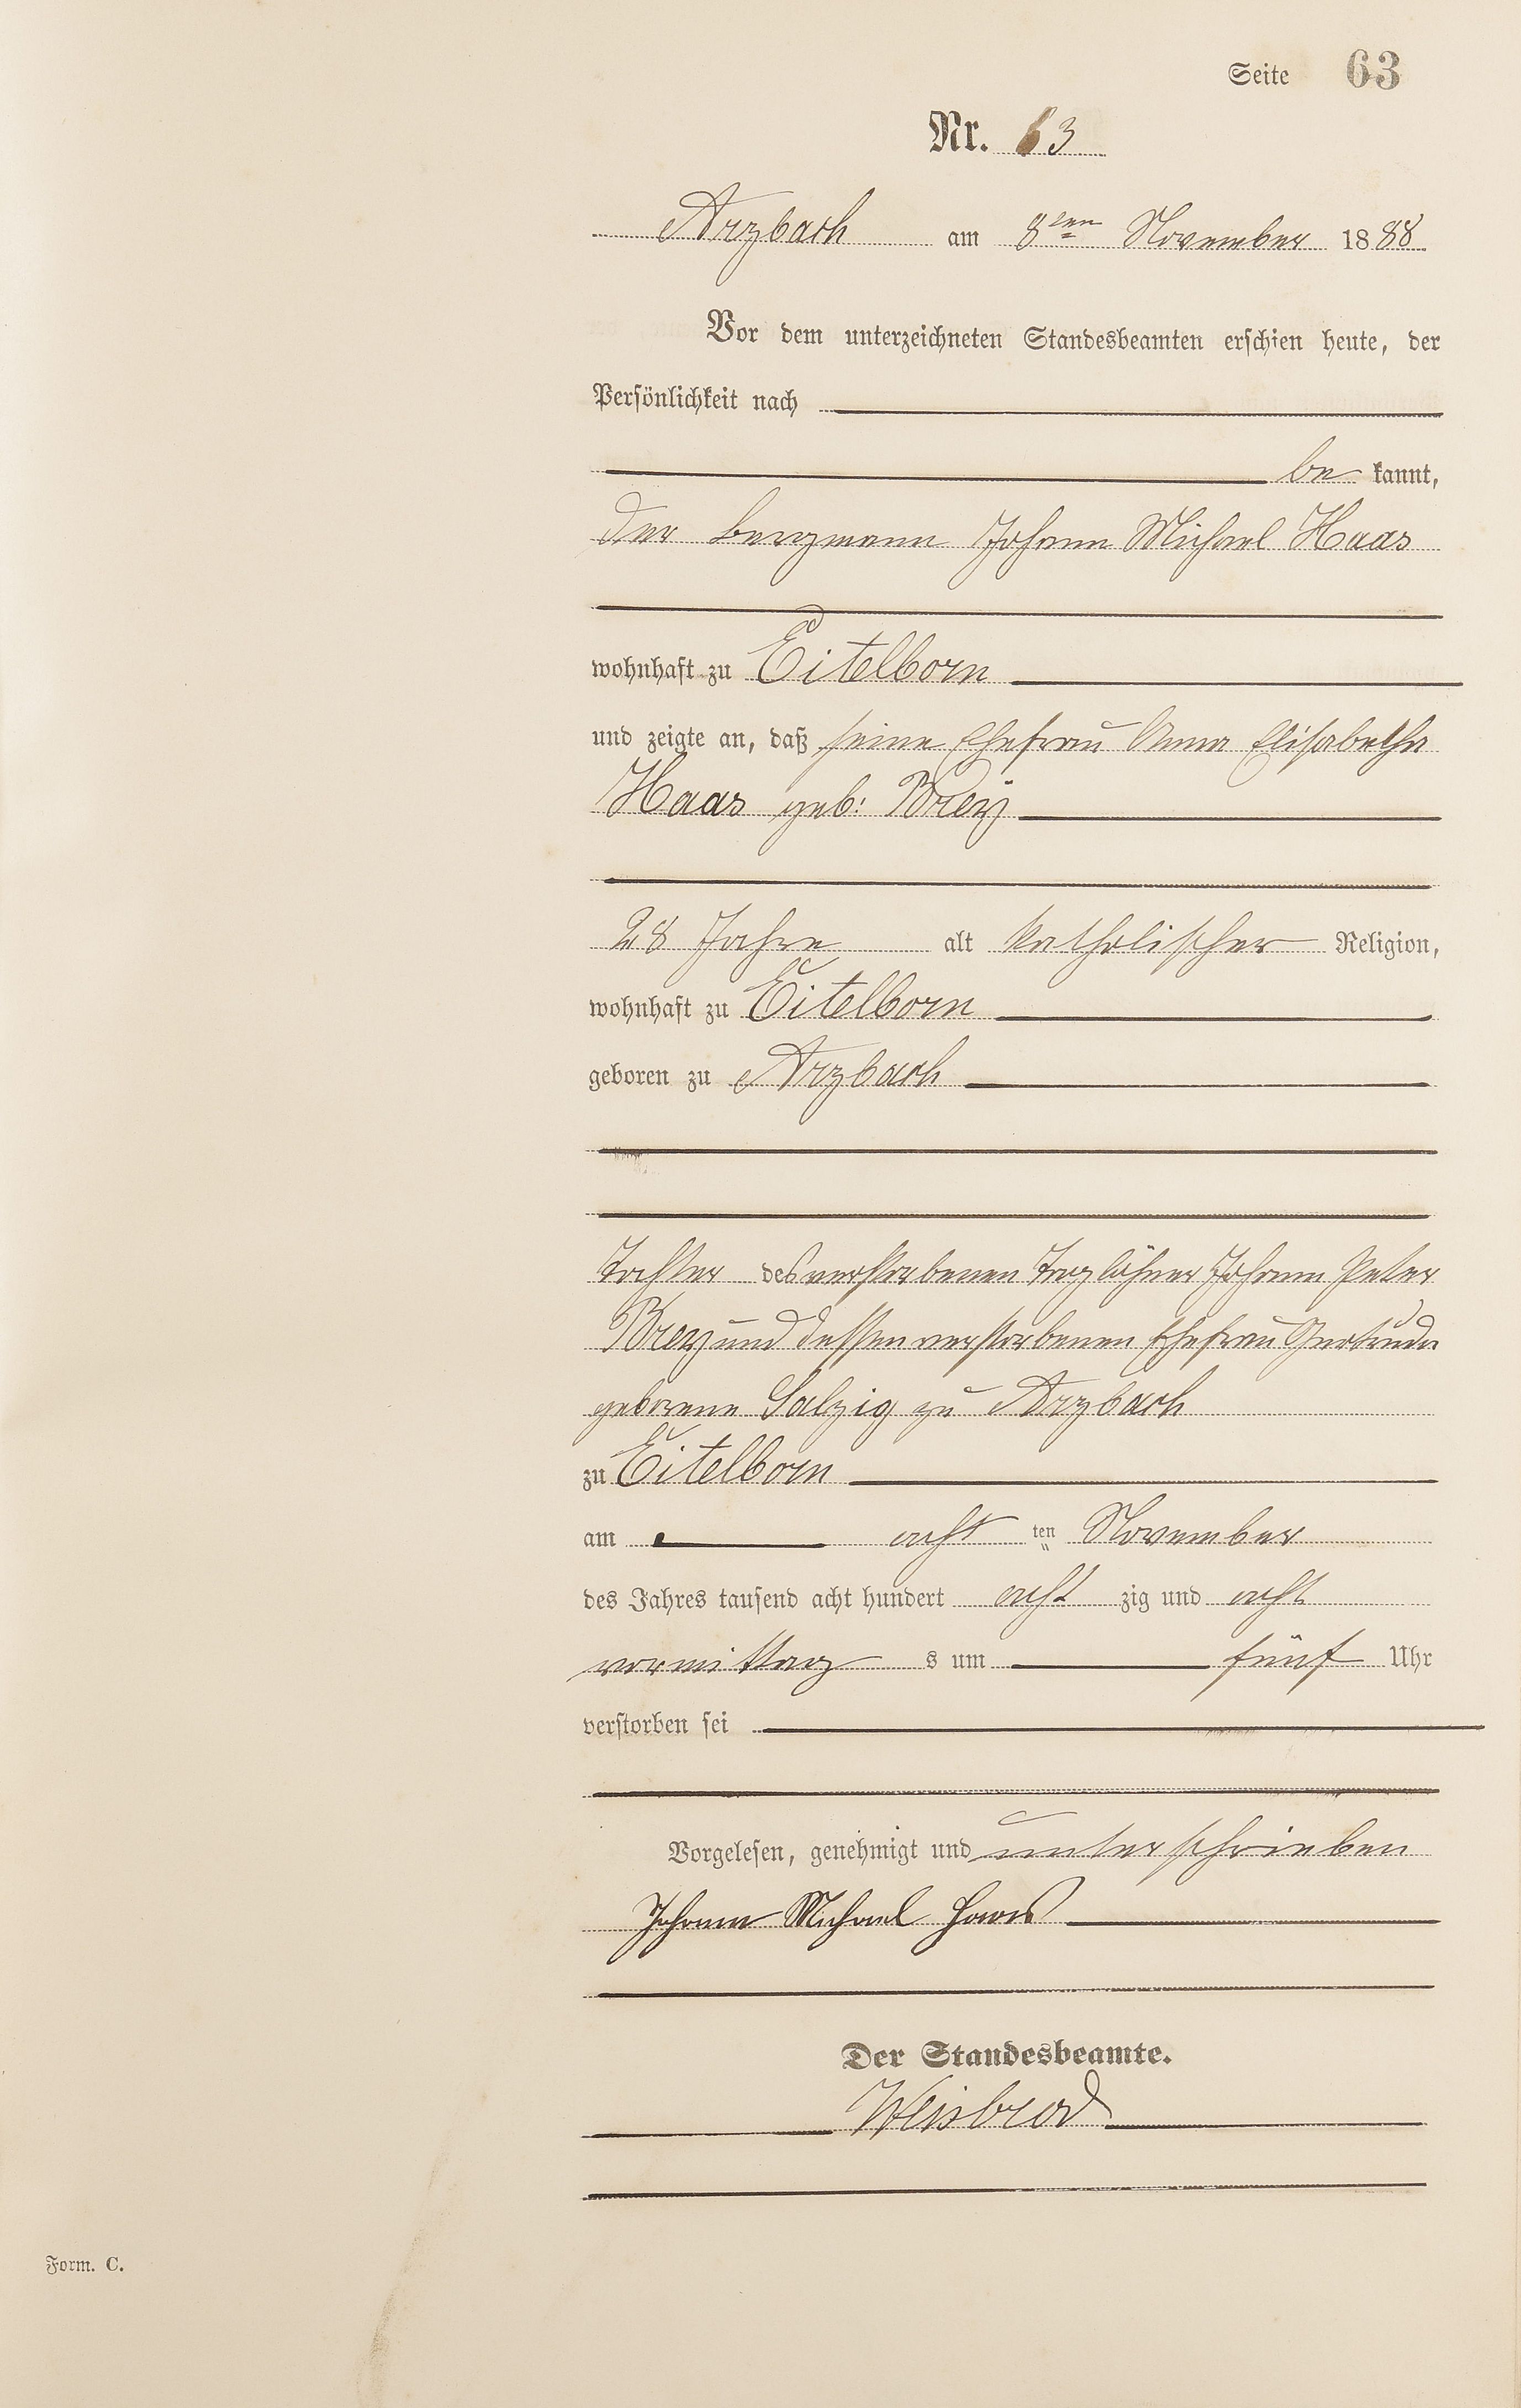 Seite 63
Nr. 63
Arzbach am 8ten November 1888
Vor dem unterzeichneten Standesbeamten erschien heute, der
Persönlichkeit nach
be kannt,
der Bergmann Johann Michael Haas
wohnhaft zu Eitelborn
und zeigte an, daß seine Ehefrau Anna Elisabetha
Haas geb: Breÿ
28 Jahre alt katholischer Religion,
wohnhaft zu Eitelborn
geboren zu Arzbach
Tochter des verstorbenen Taglöhner Johann Peter
Brey und dessen verstorbenen Ehefrau Gertruda
geborene Salzig zu Arzbach
zu Eitelborn
am acht ten November
des Jahres tausend acht hundert acht zig und acht
vormittag s um fünf Uhr
verstorben sei
Vorgelesen, genehmigt und unterschrieben
Johann Michael Haas
Der Standesbeamte.
Weisbrod
Form. C.